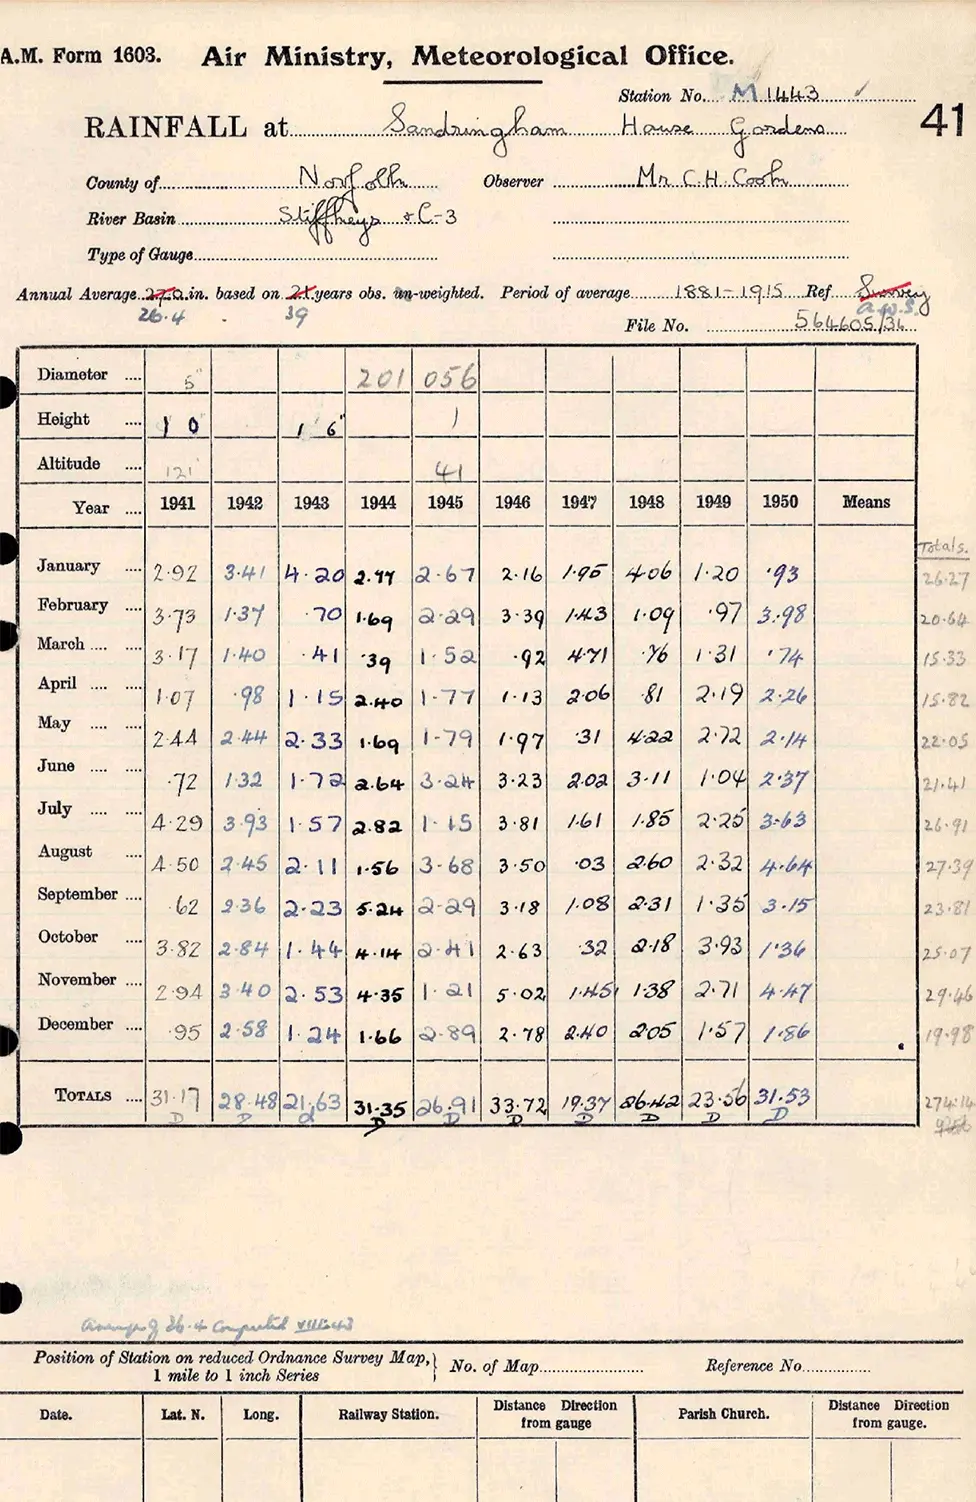 A.M. Form 1603. Air Ministry, Meteorological Office.
Station No. M 1443 ✓
41
RAINFALL at Sandringham House Gardens
County of Norfolk Observer Mr C.H. Cook
River Basin Stiffkeys & C-3
Type of Gauge
Annual Average 27.0 in. based on 21 years obs. un-weighted. Period of average 1881-1915 Ref Survey
26.4 39 a.w.S.
File No. 564605/36
Diameter .... 5" 201 056
Height .... 1' 0" 1' 6" 1
Altitude .... 121' 41
Year .... 1941 1942 1943 1944 1945 1946 1947 1948 1949 1950 Means
Totals.
January .... 2.92 3.41 4.20 2.77 2.67 2.16 1.95 4.06 1.20 .93 26.27
February .... 3.73 1.37 .70 1.69 2.29 3.39 1.43 1.09 .97 3.98 20.64
March .... .... 3.17 1.40 .41 .39 1.52 .92 4.71 .76 1.31 .74 15.33
April .... .... 1.07 .98 1.15 2.40 1.77 1.13 2.06 .81 2.19 2.26 15.82
May .... .... 2.44 2.44 2.33 1.69 1.79 1.97 .31 4.22 2.72 2.14 22.05
June .... .... .72 1.32 1.72 2.64 3.24 3.23 2.02 3.11 1.04 2.37 21.41
July .... .... 4.29 3.93 1.57 2.82 1.15 3.81 1.61 1.85 2.25 3.63 26.91
August .... 4.50 2.45 2.11 1.56 3.68 3.50 .03 2.60 2.32 4.64 27.39
September .... .62 2.36 2.23 5.24 2.29 3.18 1.08 2.31 1.35 3.15 23.81
October .... 3.82 2.84 1.44 4.14 2.41 2.63 .32 2.18 3.93 1.36 25.07
November .... 2.94 3.40 2.53 4.35 1.21 5.02 1.45 1.38 2.71 4.47 29.46
December .... .95 2.58 1.24 1.66 2.89 2.78 2.40 2.05 1.57 1.86 19.98
TOTALS .... 31.17 28.48 21.63 31.35 26.91 33.72 19.37 26.42 23.56 31.53 274.14
D D D D D D D D D D
Average of 26.4 computed VIII.43
Position of Station on reduced Ordnance Survey Map, 1 mile to 1 inch Series } No. of Map Reference No.
Date. Lat. N. Long. Railway Station. Distance from gauge Direction Parish Church. Distance Direction from gauge.